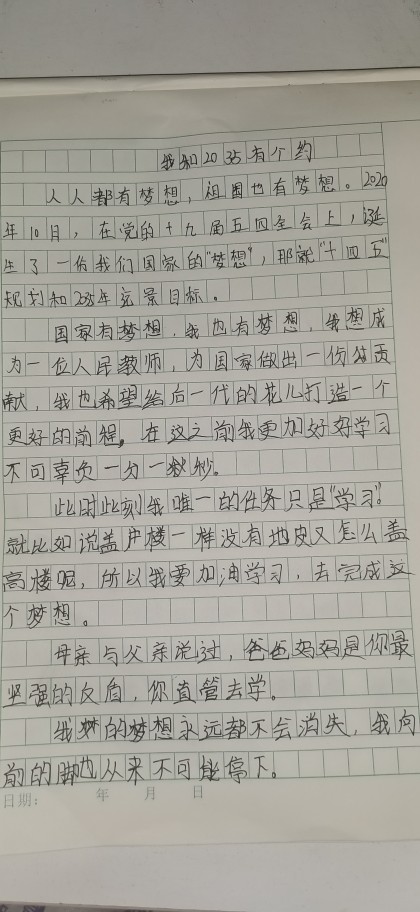 我和2035有个约
人人都有梦想，祖国也有梦想。2020
年10月，在党的十九届五四全会上，诞
生了一份我们国家的"梦想"，那就"十四五"
规划和235年远景目标。
国家有梦想，我也有梦想，我想成
为一位人民教师，为国家做出一份贡
献，我也希望给后一代的花儿打造一个
更好的前程。在这之前我更加好好学习
不可辜负一分一秒。
此时此刻我唯一的任务只是"学习"！
就比如说盖户楼一样没有地皮又怎么盖
高楼呢，所以我要加油学习，去完成这
个梦想。
母亲与父亲说过，爸爸妈妈是你最
坚强的反盾，你直管去学。
我的梦想永远都不会消失，我向
前的脚也从来不可能停下。
日期： 年 月 日